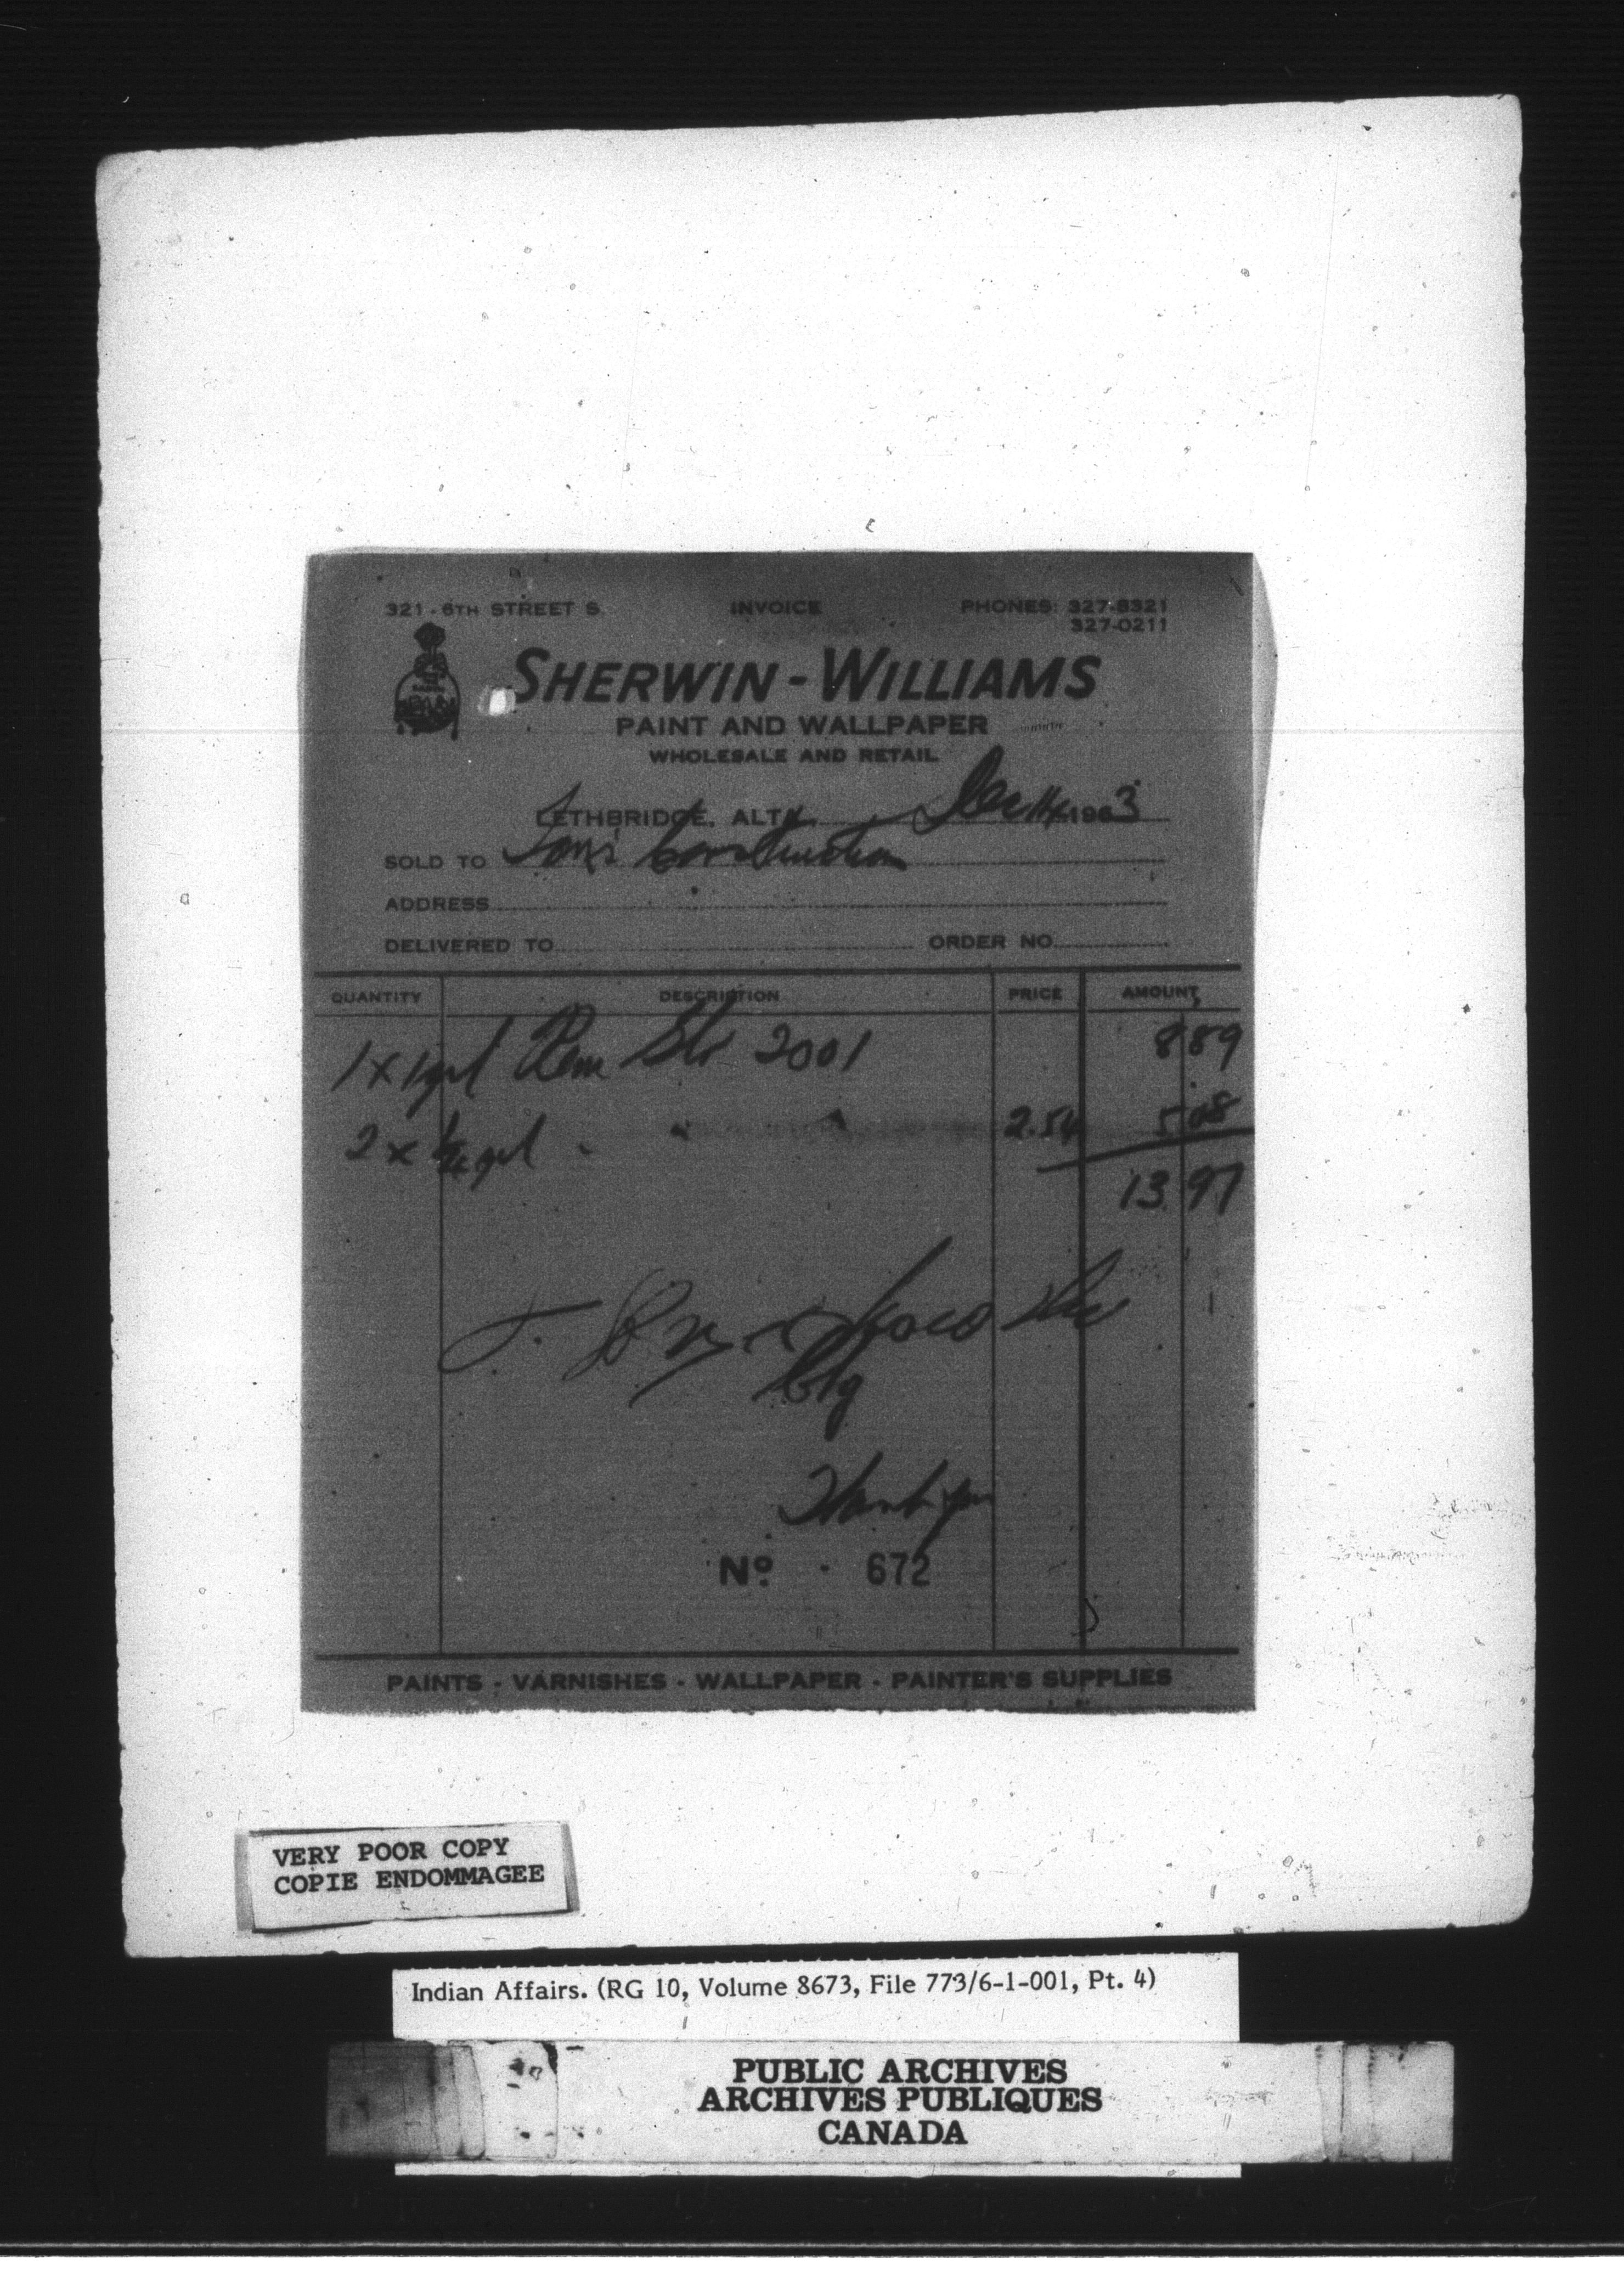 321 - 6TH STREET S. INVOICE PHONES: 327-8321
327-0211
SHERWIN-WILLIAMS
PAINT AND WALLPAPER
WHOLESALE AND RETAIL
LETHBRIDGE, ALTA. Dec 14 1963
SOLD TO Construction
ADDRESS
DELIVERED TO ORDER NO.
QUANTITY DESCRIPTION PRICE AMOUNT
1 x 1 gal 2001 8 89
2 x 1/4 gal " " 2.54 5 08
13.97
Nº - 672
PAINTS - VARNISHES - WALLPAPER - PAINTER'S SUPPLIES
VERY POOR COPY
COPIE ENDOMMAGEE
Indian Affairs. (RG 10, Volume 8673, File 773/6-1-001, Pt. 4)
PUBLIC ARCHIVES
ARCHIVES PUBLIQUES
CANADA